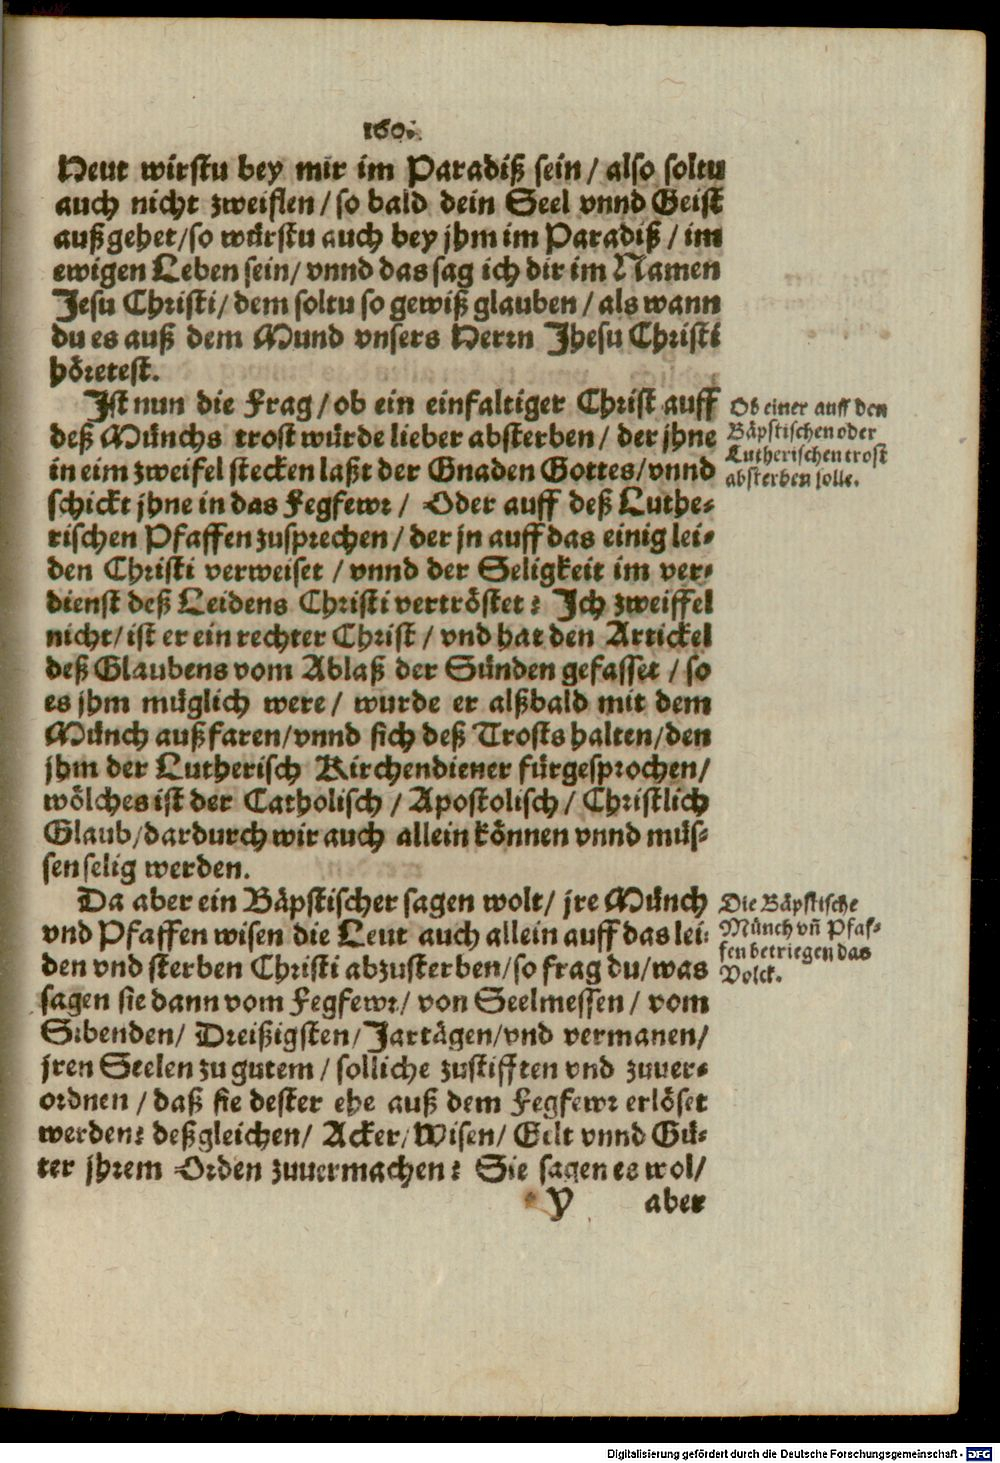 160.
Heut wirstu bey mir im Paradiß sein / also soltu
auch nicht zweiflen / so bald dein Seel vnnd Geist
außgehet / so würstu auch bey jhm im Paradiß / im
ewigen Leben sein / vnnd das sag ich dir im Namen
Jesu Christi / dem soltu so gewiß glauben / als wann
du es auß dem Mund vnsers Herrn Jhesu Christi
höretest.
Ist nun die Frag / ob ein einfaltiger Christ auff
deß Münchs trost würde lieber absterben / der jhne
in eim zweifel stecken laßt der Gnaden Gottes / vnnd
schickt jhne in das Fegfewr / Oder auff deß Luthe-
rischen Pfaffen zusprechen / der jn auff das einig lei-
den Christi verweiset / vnnd der Seligkeit im ver-
dienst deß Leidens Christi vertröstet? Ich zweiffel
nicht / ist er ein rechter Christ / vnd hat den Artickel
deß Glaubens vom Ablaß der Sünden gefasset / so
es jhm müglich were / wurde er alßbald mit dem
Münch außfaren / vnnd sich deß Trosts halten / den
jhm der Lutherisch Kirchendiener fürgesprochen /
wölches ist der Catholisch / Apostolisch / Christlich
Glaub / dardurch wir auch allein können vnnd müs-
sen selig werden.
Ob einer auff den
Bäpstischen oder
Lutherischen trost
absterben solle.
Da aber ein Bäpstischer sagen wolt / jre Münch
vnd Pfaffen wisen die Leut auch allein auff das lei-
den vnd sterben Christi abzusterben / so frag du / was
sagen sie dann vom Fegfewr / von Seelmessen / vom
Sibenden / Dreißigsten / Jartägen / vnd vermanen /
jren Seelen zu gutem / solliche zustifften vnd zuuer-
ordnen / daß sie dester ehe auß dem Fegfewr erlöset
werden? deßgleichen / Acker / Wisen / Gelt vnnd Gü-
ter jhrem Orden zuuermachen? Sie sagen es wol /
Die Bäpstische
Münch vñ Pfaf-
fen betriegen das
Volck.
Y aber
Digitalisierung gefördert durch die Deutsche Forschungsgemeinschaft - DFG